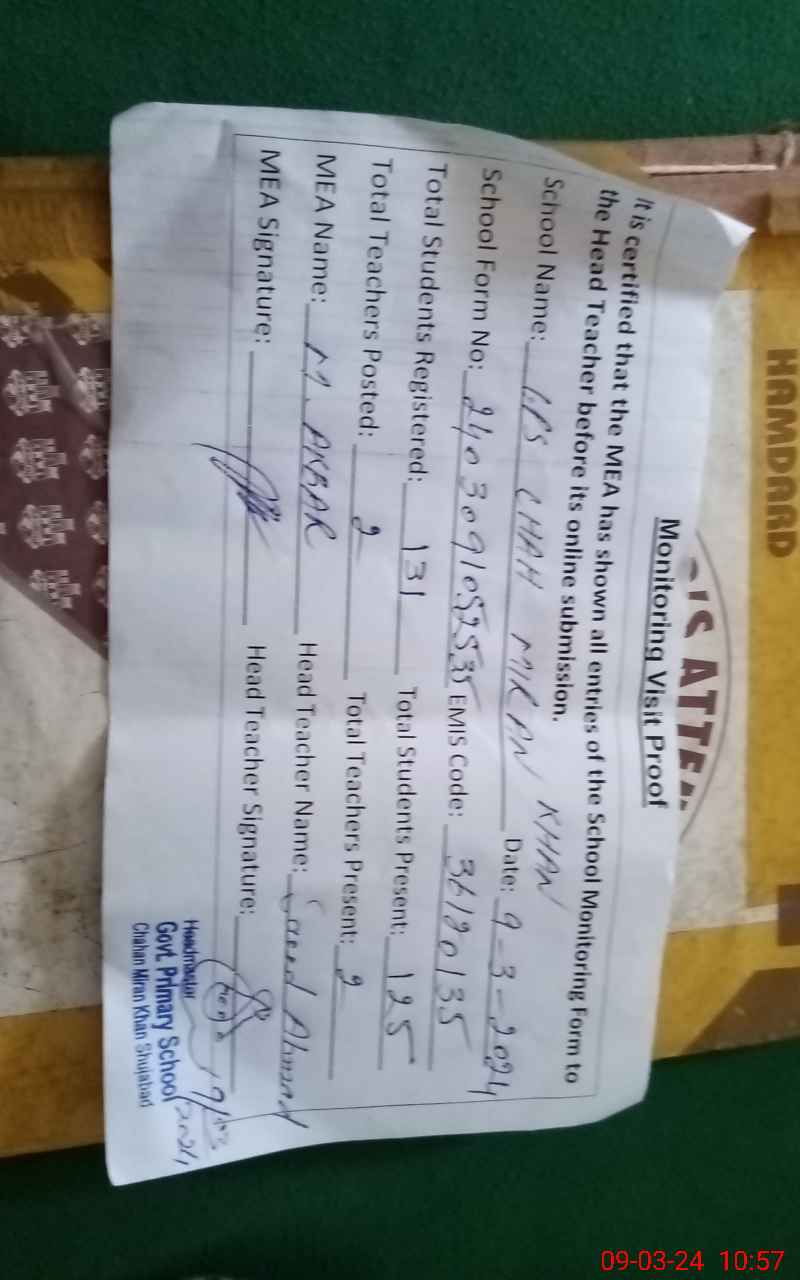 Monitoring Visit Proof
It is certified that the MEA has shown all entries of the School Monitoring Form to
the Head Teacher before its online submission.
School Name: PS CHAH MIRAN KHAN Date: 9-3-2024
School Form No: 2403091052535 EMIS Code: 36120135
Total Students Registered: 131 Total Students Present: 125
Total Teachers Posted: 2 Total Teachers Present: 2
MEA Name: M. AKBAR Head Teacher Name: Saeed Ahmad
MEA Signature: Head Teacher Signature:
Headmaster
Govt. Primary School
Chahan Miran Khan Shujabad
2024
HAMDARD
'S ATTE
09-03-24 10:57